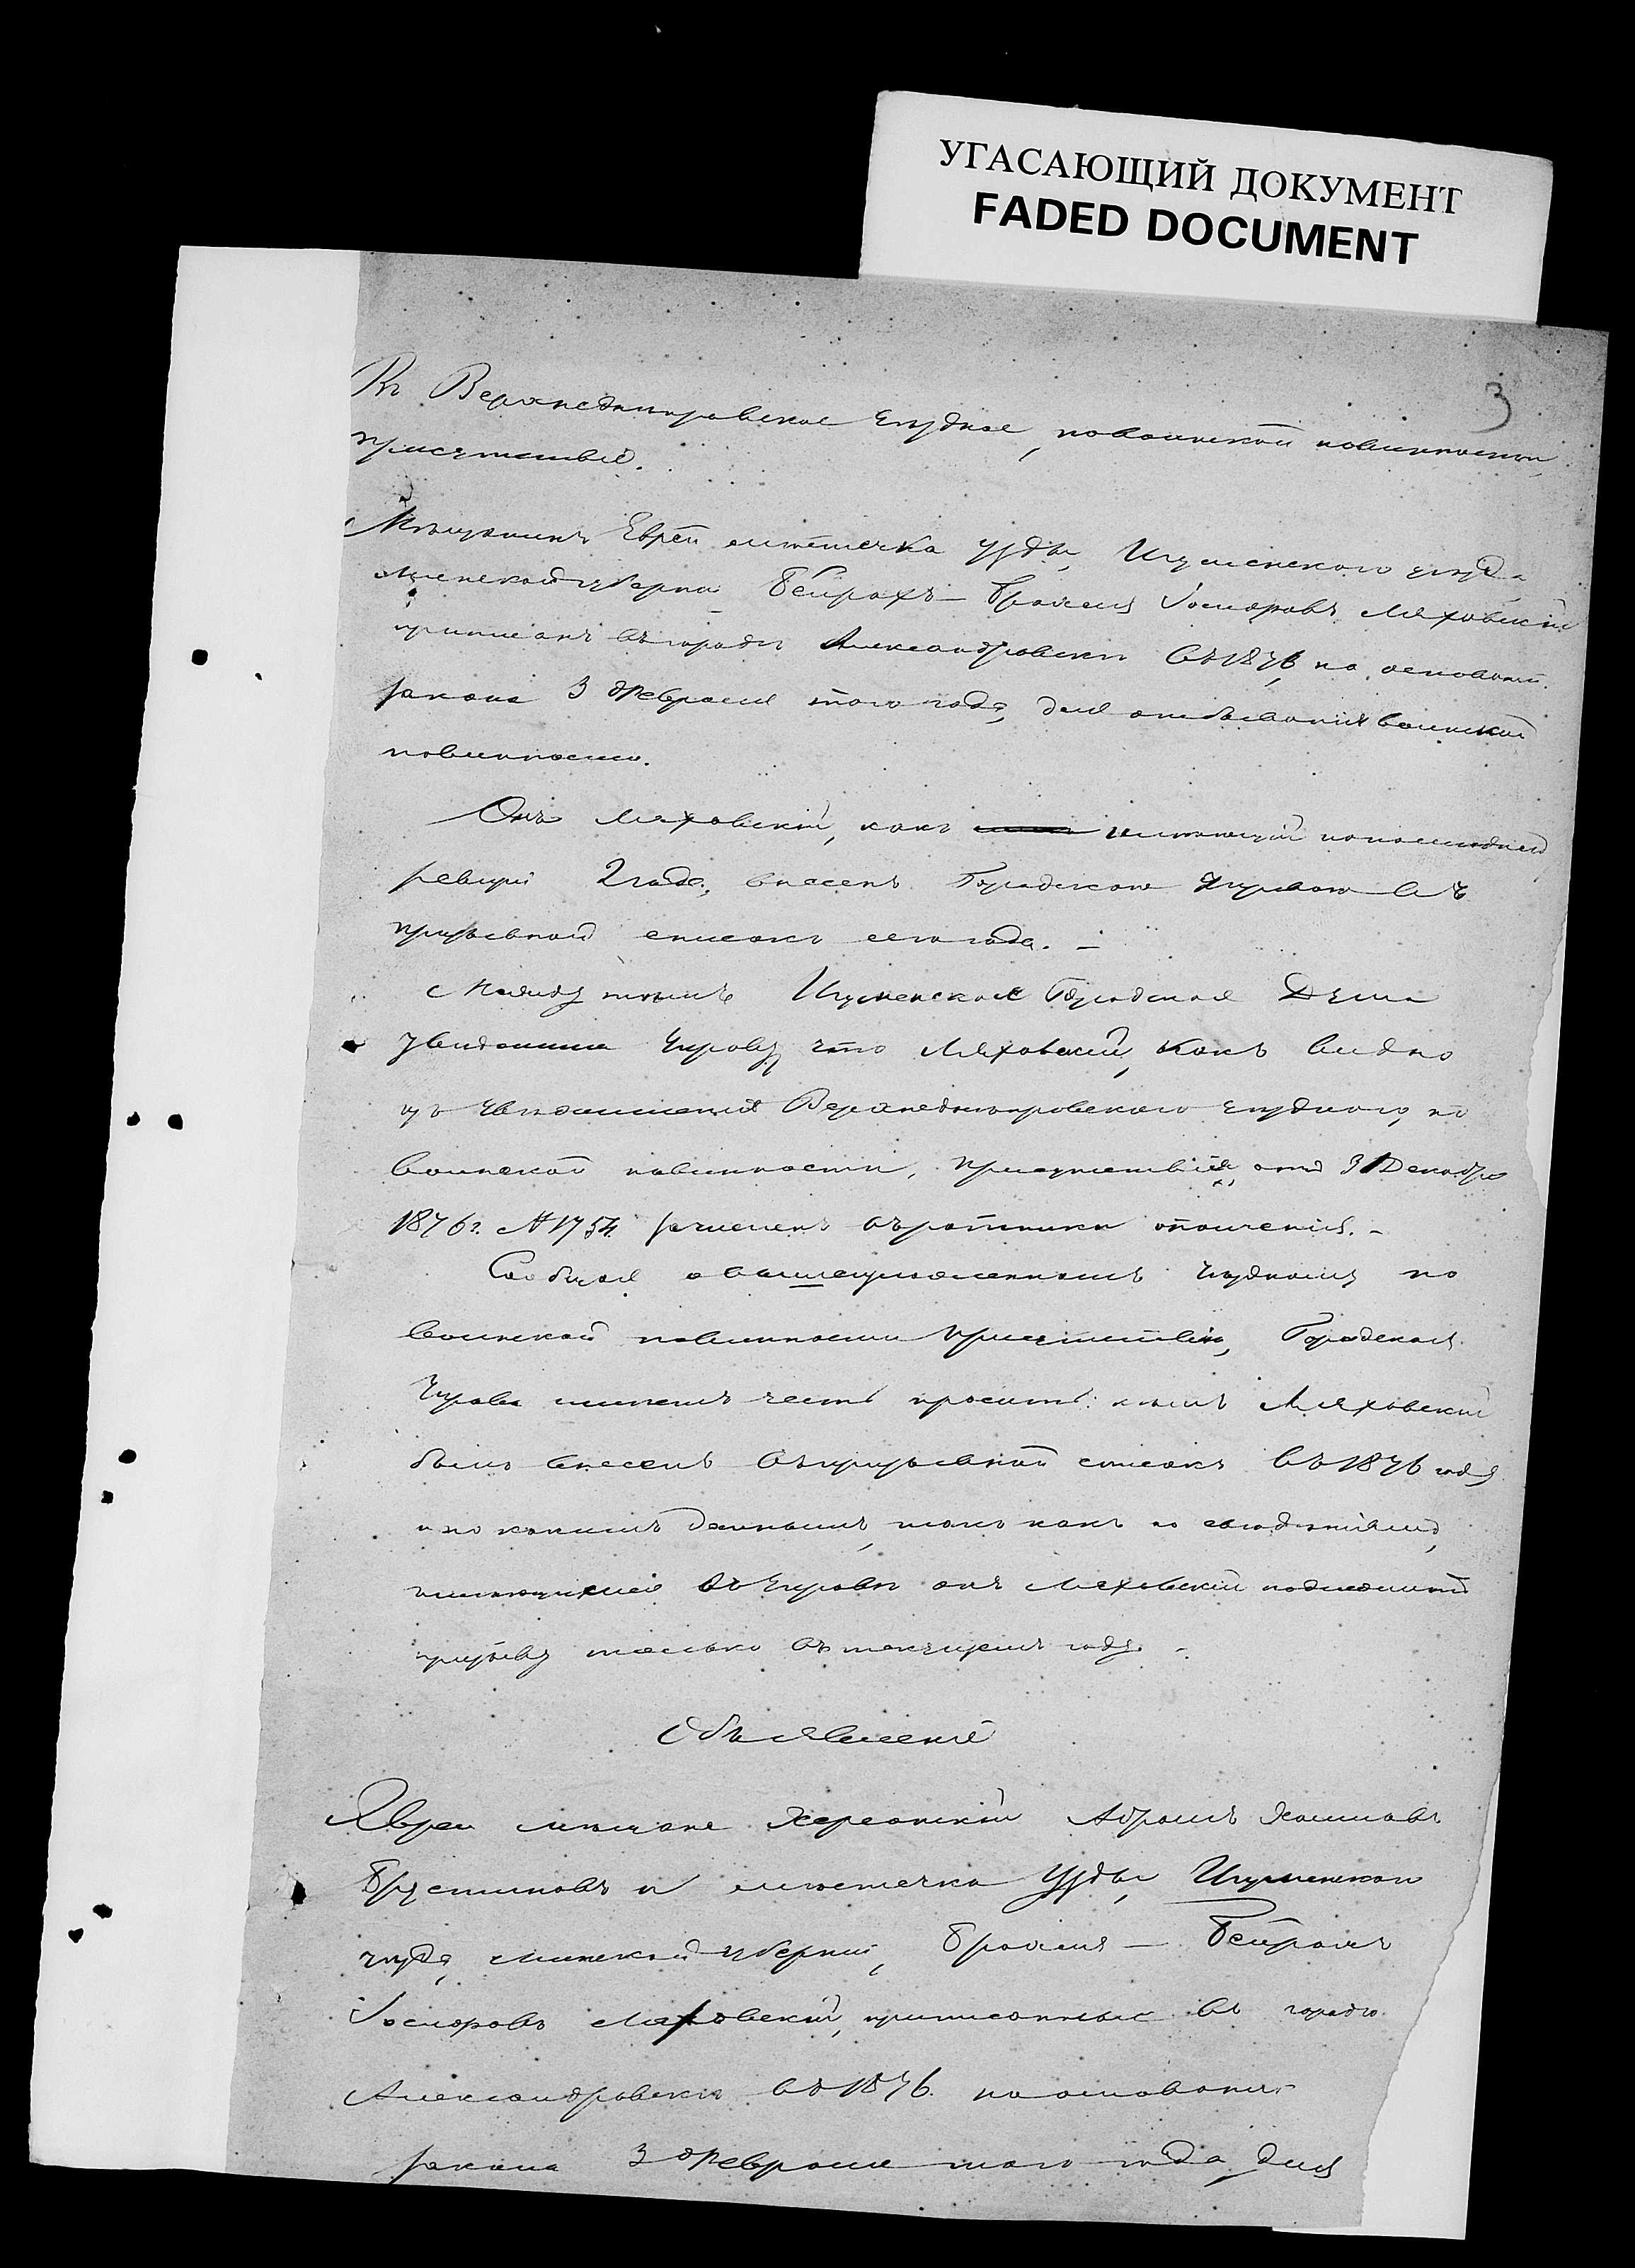 УГАСАЮЩИЙ ДОКУМЕНТ
FADED DOCUMENT
3
Въ Верхнеднѣпровское Уѣздное, по воинской повинности,
присутствіе.
Мѣщанинъ Еврей мѣстечка Узды, Игуменскаго уѣзда
Минской губерніи Бейрахъ-Бролея Іосиоровъ Ляховскій
приписанъ въ городъ Александровскъ въ 1876, на основаніи
закона 3 Февраля того года, для отбыванія воинской
повинности.
Онъ Ляховскій, какъ имѣющій по послѣдней
ревизіи 2 года, внесенъ Городскою Управою въ
призывной списокъ сего года. –
Между тѣмъ Игуменская Городская Дума
увѣдомила Управу, что Ляховскій, какъ видно
изъ увѣдомленія Верхнеднѣпровскаго уѣзднаго, по
воинской повинности, присутствія, отъ 31 Декабря
1876 г. № 1754 зачисленъ въ ратники ополченія. –
Сообщая о вышеизложенномъ Уѣздному по
воинской повинности присутствію, Городская
Управа имѣетъ честь просить: какъ Ляховскій
былъ внесенъ въ призывной списокъ въ 1876 году
и по какимъ даннымъ, такъ какъ по свѣдѣніямъ,
имѣющимся въ Управѣ онъ Ляховскій подлежитъ
призыву только въ текущемъ году. –
Объявленіе
Евреи мѣщане Херсонскій Абрамъ Хаимовъ
Брустиновъ и мѣстечка Узды, Игуменскаго
уѣзда, Минской губерніи, Бролея – Бейрахъ
Іосиоровъ Ляховскій, приписанные въ городѣ
Александровскѣ въ 1876. на основаніи
закона 3 Февраля того года, для